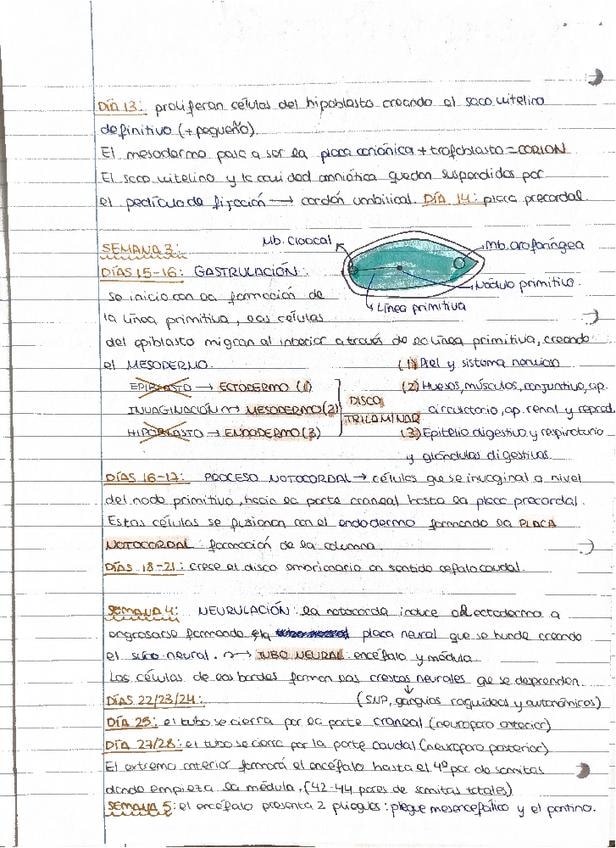 DÍA 13: proliferan células del hipoblasto creando el saco vitelino
definitivo (+pequeño).
El mesodermo pasa a ser la placa coriónica + trofoblasto = CORION
El saco vitelino y la cavidad amniótica quedan suspendidos por
el pedículo de fijación → cordón umbilical. DÍA 14: placa precordal.
SEMANA 3:
Mb. Cloacal
Mb. orofaríngea
DÍAS 15-16: GASTRULACIÓN:
Nódulo primitivo.
Línea primitiva
Se inicia con la formación de
la línea primitiva, las células
del epiblasto migran al interior a través de la línea primitiva, creando
el MESODERMO.
(1) Piel y sistema nervioso
EPIBLASTO → ECTODERMO (1)
(2) Huesos, músculos, conjuntivo, ap.
INVAGINACIÓN → MESODERMO (2)
DISCO
TRILAMINAR
circulatorio, ap. renal y reprod.
HIPOBLASTO → ENDODERMO (3)
(3) Epitelio digestivo y respiratorio
y glándulas digestivas.
DÍAS 16-17: PROCESO NOTOCORDAL → células que se invaginal a nivel
del nodo primitivo, hacia la parte craneal hasta la placa precordal.
Estas células se fusionan con el endodermo formando la PLACA
NOTOCORDAL: formación de la columna.
DÍAS 18-21: crece el disco embrionario en sentido cefalocaudal.
SEMANA 4: NEURULACIÓN: la notocorda induce al ectodermo a
engrosarse formando la placa neural que se hunde creando
el surco neural. → TUBO NEURAL: encéfalo y médula
Las células de los bordes forman las crestas neurales que se desprenden.
DÍAS 22/23/24:
(SNP, ganglios raquídeos y autonómicos)
DÍA 25: el tubo se cierra por la parte craneal (neuroporo anterior)
DÍA 27/28: el tubo se cierra por la parte caudal (neuroporo posterior)
El extremo anterior formará el encéfalo hasta el 4º par de somitas
donde empieza la médula. (42-44 pares de somitas totales)
SEMANA 5: el encéfalo presenta 2 pliegues: pliegue mesencefálico y el pontino.